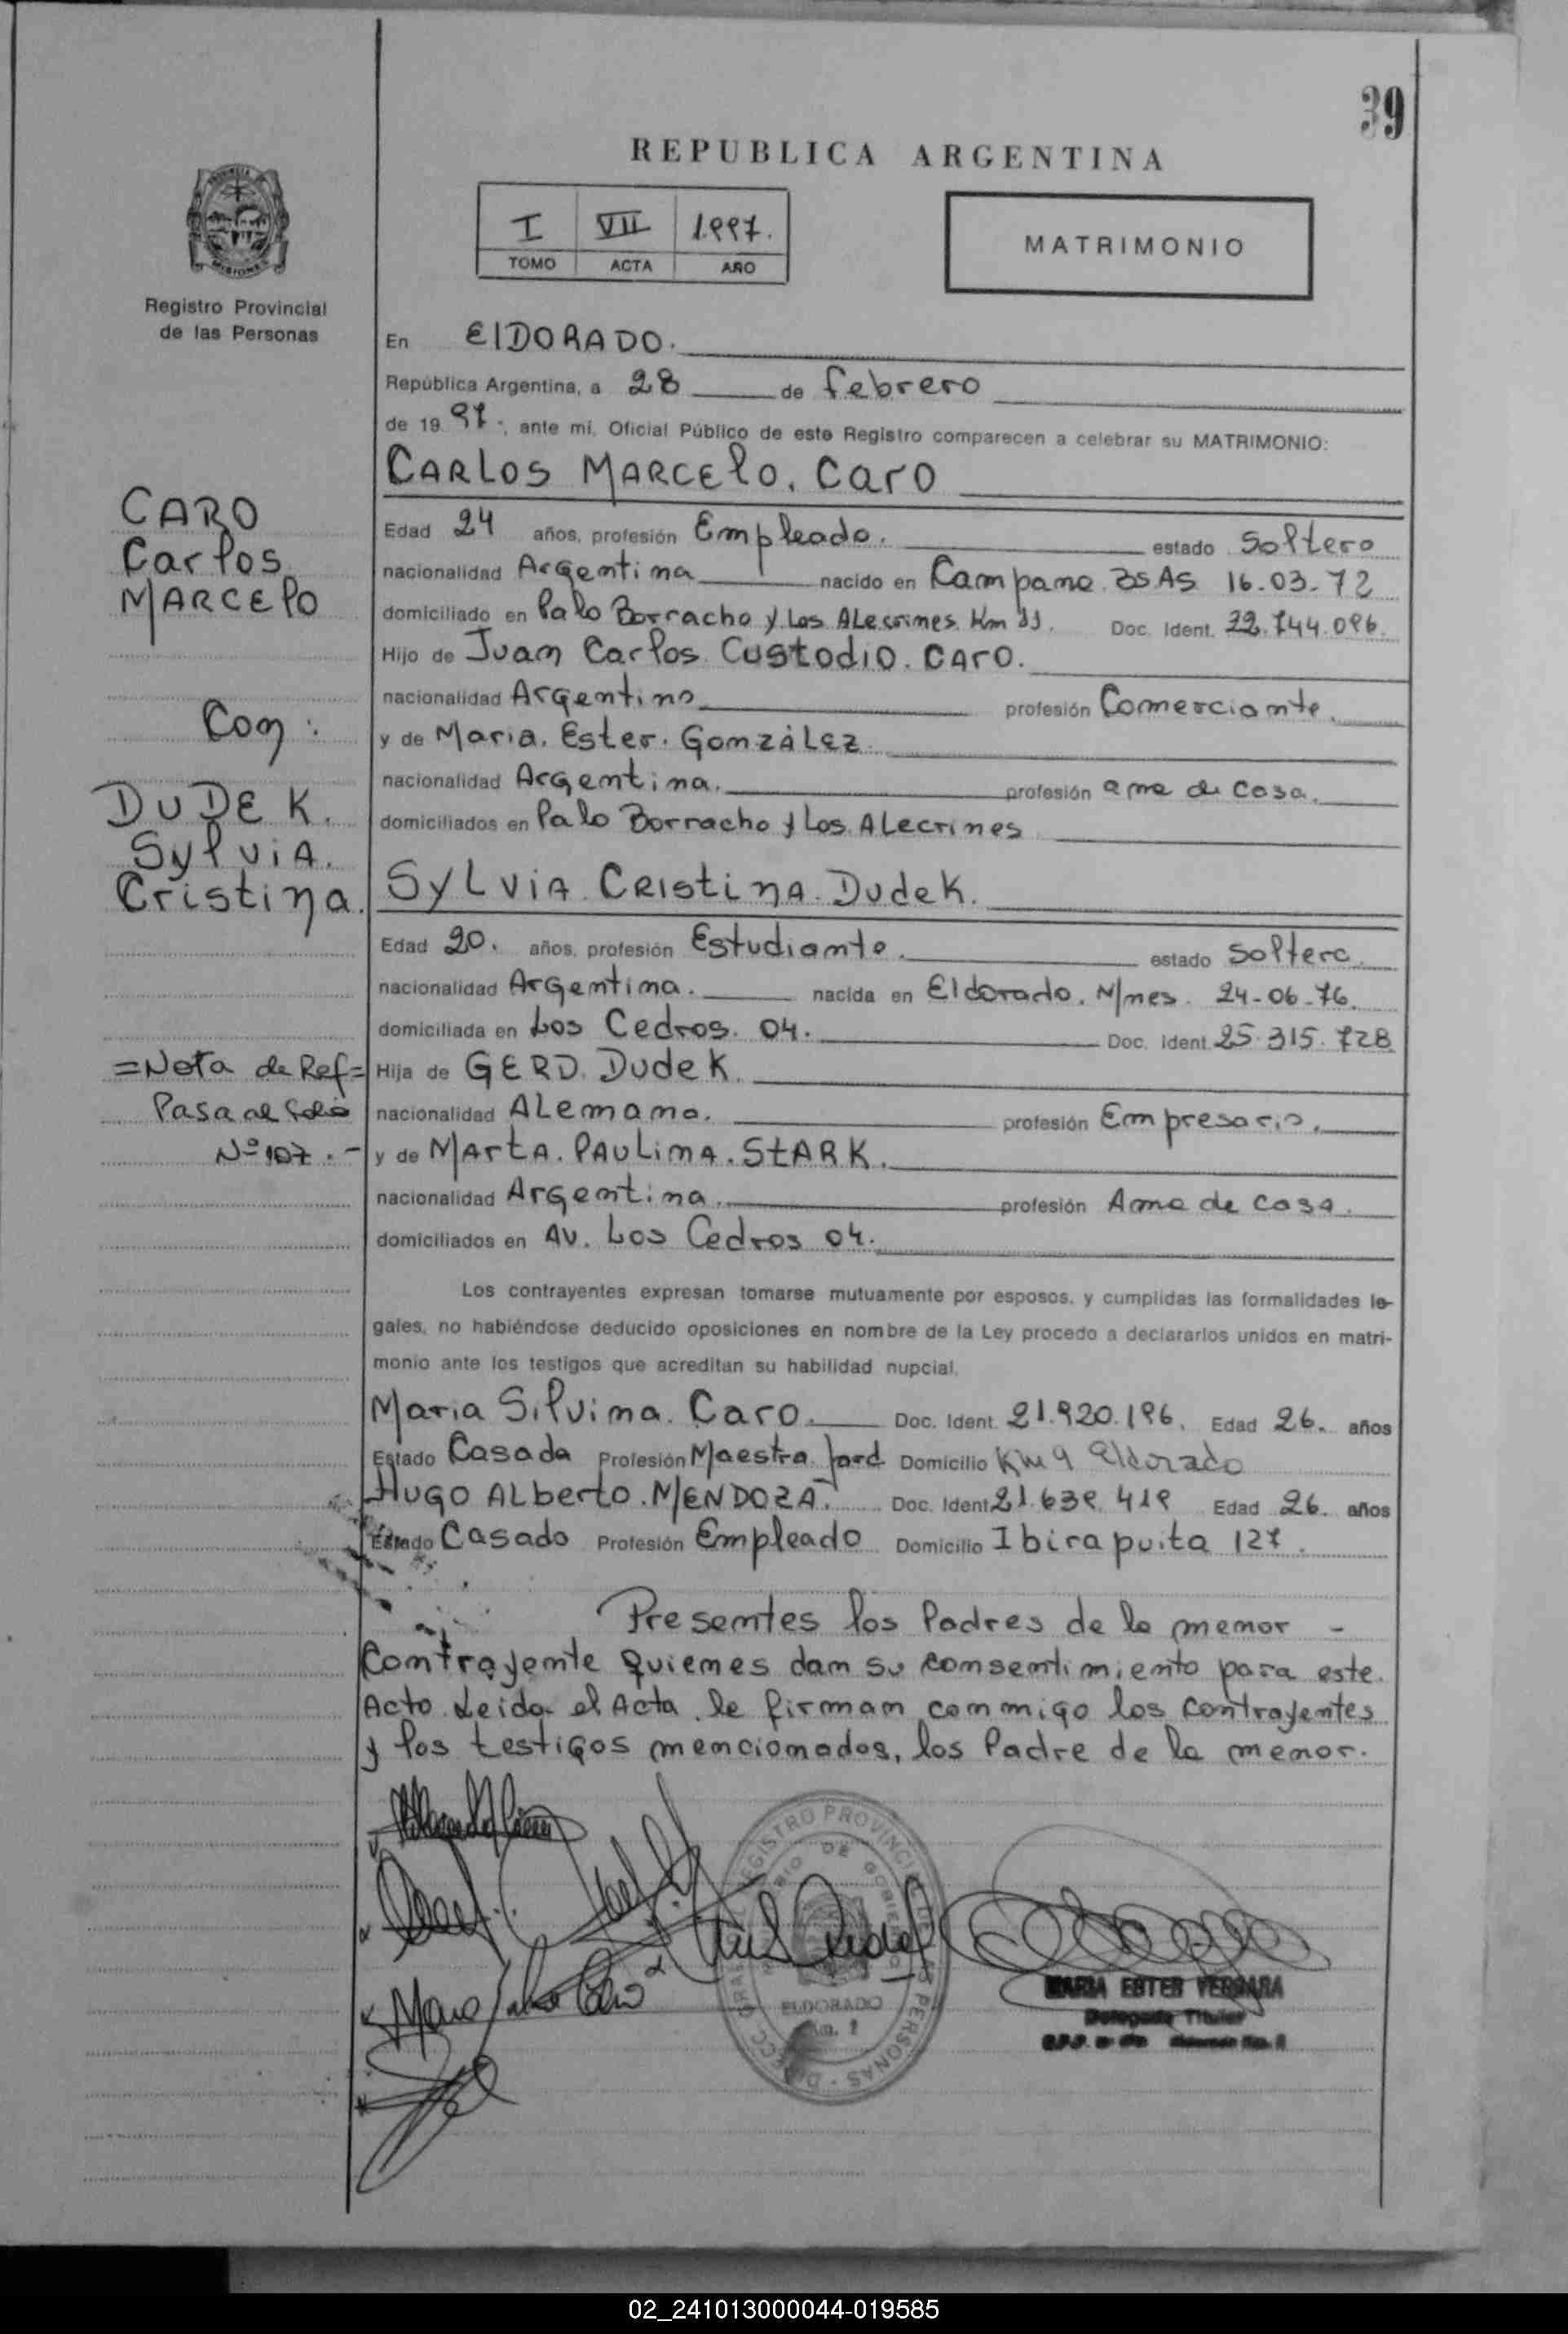 39
REPUBLICA ARGENTINA
I VII 1.997.
TOMO ACTA AÑO
MATRIMONIO
MISIONES
Registro Provincial
de las Personas
En ElDORADO.
República Argentina, a 28 de febrero
de 19 97-, ante mí, Oficial Público de este Registro comparecen a celebrar su MATRIMONIO:
CARLOS MARCElo. Caro
CARO
Carlos
MARCElO
Con:
DUDEK.
Sylvia.
Cristina.
=Nota de Ref=
Pasa al folio
Nº 107.-
Edad 24 años, profesión Empleado. estado Soltero
nacionalidad Argentina nacido en Campana. BS.AS 16-03-72
domiciliado en Palo Borracho y Los Alecrines Km 11. Doc. Ident. 22.744.096.
Hijo de Juan Carlos Custodio. CARO.
nacionalidad Argentino profesión Comerciante.
y de Maria. Ester. GonzáLez.
nacionalidad Argentina. profesión ama de casa.
domiciliados en Palo Borracho y Los Alecrines
SyLviA Cristina Dudek.
Edad 20. años, profesión Estudiante. estado soltera.
nacionalidad Argentina. nacida en Eldorado. M/nes. 24-06-76.
domiciliada en Los Cedros. 04. Doc. Ident. 25.315.728
Hija de GERD. Dudek.
nacionalidad ALemana. profesión Empresario.
y de Marta. PAULinA. StARK.
nacionalidad Argentina. profesión Ama de casa.
domiciliados en AV. Los Cedros 04.
Los contrayentes expresan tomarse mutuamente por esposos, y cumplidas las formalidades le-
gales, no habiéndose deducido oposiciones en nombre de la Ley procedo a declararlos unidos en matri-
monio ante los testigos que acreditan su habilidad nupcial.
Maria Silvina. Caro. Doc. Ident. 21.920.196. Edad 26. años
Estado Casada Profesión Maestra Jard Domicilio Km 9 Eldorado
HUGO ALberto. MENDOZA. Doc. Ident. 21.639.419 Edad 26. años
Estado Casado Profesión Empleado Domicilio Ibirapuita 127.
Presentes los Padres de la menor -
Contrayente quienes dan su consentimiento para este.
Acto. Leida el Acta, le firman conmigo los contrayentes
y los testigos mencionados, los Padre de la menor.
REGISTRO PROVINCIAL DE LAS PERSONAS
DE GOBIERNO
ELDORADO
MARIA ESTER VERGARA
Delegada Titular
02_241013000044-019585